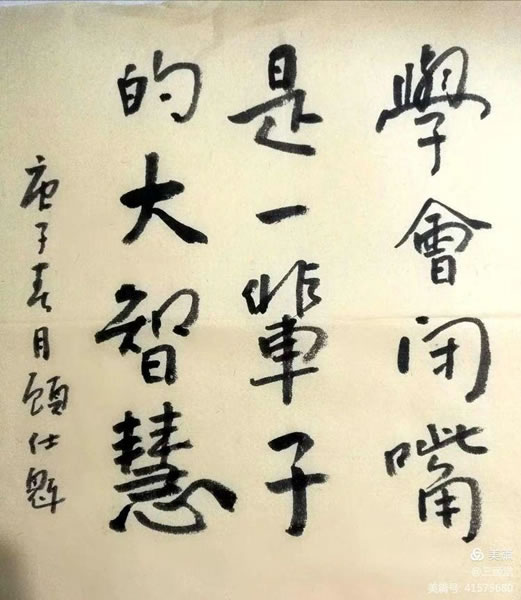 學會闭嘴
是一輩子
的大智慧
庚子春月顾仕魁
美篇
@三医斋
美篇号: 41575680